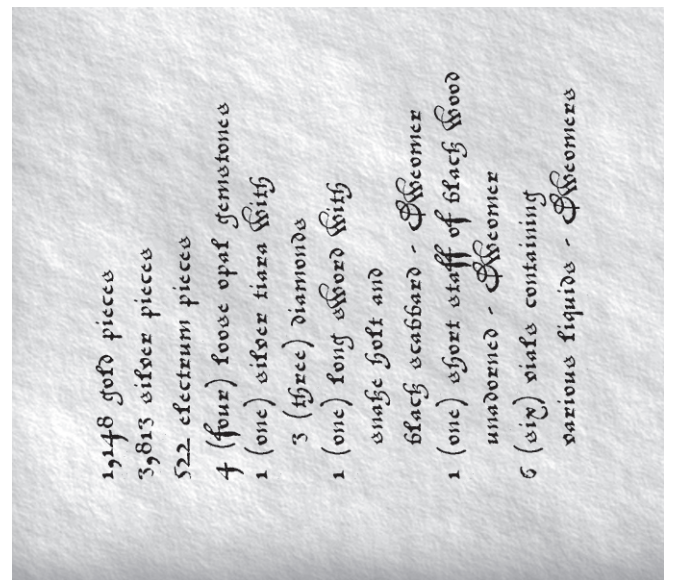 1,148 gold pieces
3,813 silver pieces
522 electrum pieces
4 (four) loose opal gemstones
1 (one) silver tiara with
3 (three) diamonds
1 (one) long sword with
snake holt and
black scabbard - Dweomer
1 (one) short staff of black wood
unadorned - Dweomer
6 (six) vials containing
various liquids - Dweomers